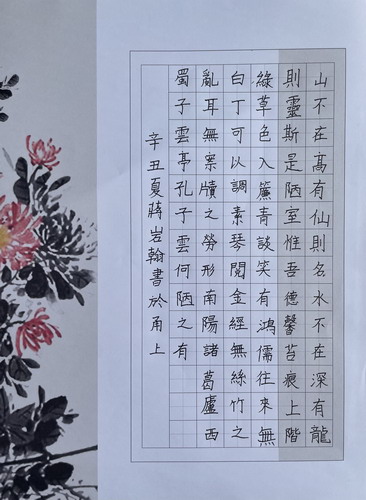 山不在高有仙則名水不在深有龍
則靈斯是陋室惟吾德馨苔痕上階
綠草色入簾青談笑有鴻儒往來無
白丁可以調素琴閱金經無絲竹之
亂耳無案牘之勞形南陽諸葛廬西
蜀子雲亭孔子雲何陋之有
辛丑夏蔣岩翰書於甬上